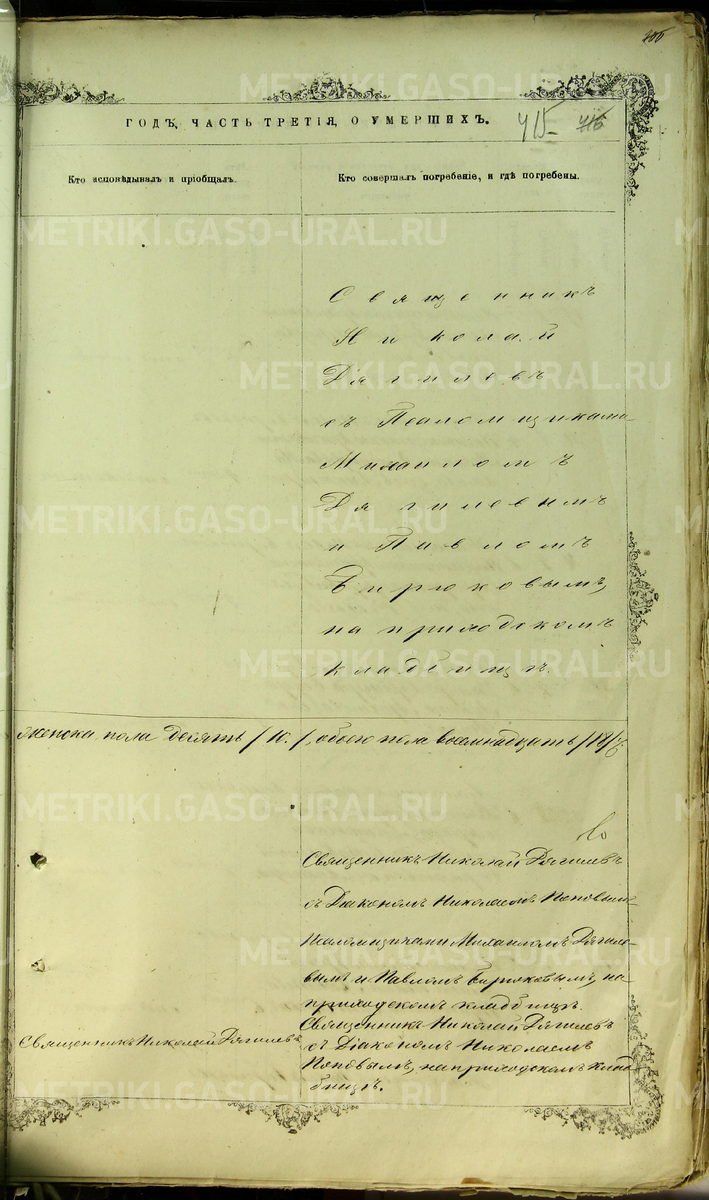 406
ГОДЪ, ЧАСТЬ ТРЕТІЯ, О УМЕРШИХЪ. 415 416
Кто исповѣдывалъ и пріобщалъ.
Кто совершалъ погребеніе, и гдѣ погребены.
Священникъ
Николай
Дягилевъ
съ Псаломщиками
Михаиломъ
Дягилевымъ
и Павломъ
Бирюковымъ,
на приходскомъ
кладбищѣ.
женска пола десять /10./, обоего пола восемнадцать /18/
Священникъ Николай Дягилевъ
съ Діакономъ Николаемъ Поповымъ
Псаломщиками Михаиломъ Дягиле-
вымъ и Павломъ Бирюковымъ, на
приходскомъ кладбищѣ.
Священникъ Николай Дягилевъ
Священникъ Николай Дягилевъ
съ Діакономъ Николаемъ
Поповымъ, на приходскомъ клад-
бищѣ.
METRIKI.GASO-URAL.RU